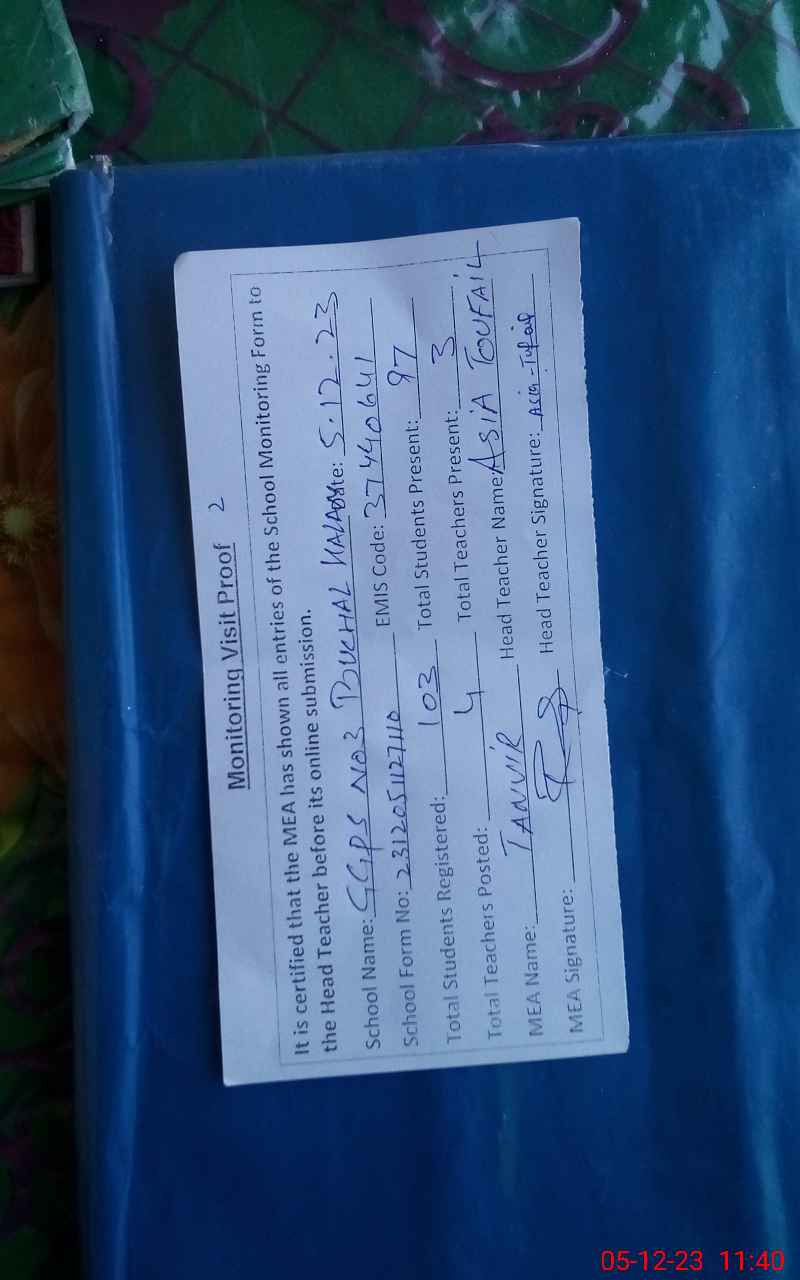 Monitoring Visit Proof 2
It is certified that the MEA has shown all entries of the School Monitoring Form to
the Head Teacher before its online submission.
School Name: GGPS NO3 BUCHAL KALAN Date: 5.12.23
School Form No: 2312051127110 EMIS Code: 37440641
Total Students Registered: 103 Total Students Present: 97
Total Teachers Posted: 4 Total Teachers Present: 3
MEA Name: TANVIR Head Teacher Name: ASIA TOUFAIL
MEA Signature: Head Teacher Signature: Asia-Tufail
05-12-23 11:40